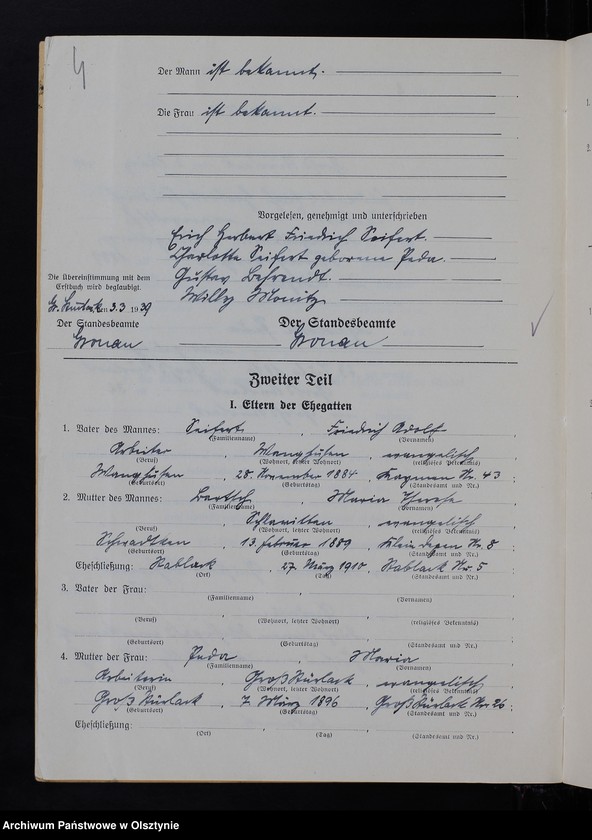 4
Der Mann ist bekannt.
Die Frau ist bekannt.
Vorgelesen, genehmigt und unterschrieben
Erich Herbert Friedrich Seifert.
Charlotte Seifert geborene Peda.
Gustav Behrendt.
Willy Monitz
Die Übereinstimmung mit dem
Erstbuch wird beglaubigt.
Gr. Stürlack den 3.3. 1939
Der Standesbeamte
Der Standesbeamte
Zweiter Teil
I. Eltern der Ehegatten
1. Vater des Mannes: Seifert, Friedrich Adolf,
(Familienname) (Vornamen)
Arbeiter, evangelisch
(Beruf) (Wohnort, letzter Wohnort) (religiöses Bekenntnis)
28. November 1884, Nr. 43;
(Geburtsort) (Geburtstag) (Standesamt und Nr.)
2. Mutter des Mannes: Bartsch, Maria Therese,
(Familienname) (Vornamen)
evangelisch
(Beruf) (Wohnort, letzter Wohnort) (religiöses Bekenntnis)
13. Februar 1889, Nr. 8;
(Geburtsort) (Geburtstag) (Standesamt und Nr.)
Eheschließung: Kablack, 27. März 1910, Kablack Nr. 5
(Ort) (Tag) (Standesamt und Nr.)
3. Vater der Frau:
(Familienname) (Vornamen)
(Beruf) (Wohnort, letzter Wohnort) (religiöses Bekenntnis)
(Geburtsort) (Geburtstag) (Standesamt und Nr.)
4. Mutter der Frau: Peda, Maria
(Familienname) (Vornamen)
Arbeiterin, Groß Stürlack, evangelisch
(Beruf) (Wohnort, letzter Wohnort) (religiöses Bekenntnis)
Groß Stürlack, 7. März 1896, Groß Stürlack Nr. 26;
(Geburtsort) (Geburtstag) (Standesamt und Nr.)
Eheschließung:
(Ort) (Tag) (Standesamt und Nr.)
Archiwum Państwowe w Olsztynie